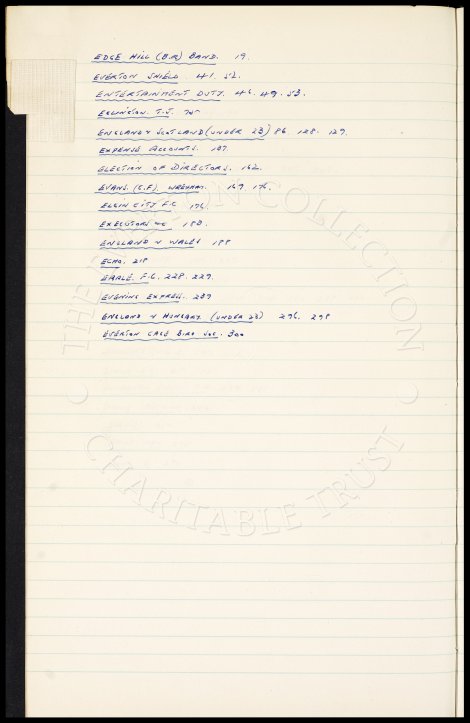 EDGE HILL (B.R) BAND. 19.
EVERTON SHIELD. 41. 52.
ENTERTAINMENT DUTY. 46. 49. 53.
EGLINGTON. T.J. 75
ENGLAND v SCOTLAND (UNDER 23) 86 128. 129.
EXPENSE ACCOUNTS. 107.
ELECTION OF DIRECTORS. 162.
EVANS. (C.F). WREXHAM. 169 176.
ELGIN CITY F.C 176.
EXECUTORS 180.
ENGLAND v WALES 188
ECHO. 218
EARLE. F.C. 228. 229.
EVENING EXPRESS. 289
ENGLAND v HUNGARY (UNDER 23) 296. 298
EVERTON CAGE BIRD SOC. 300
THE EVERTON COLLECTION
CHARITABLE TRUST